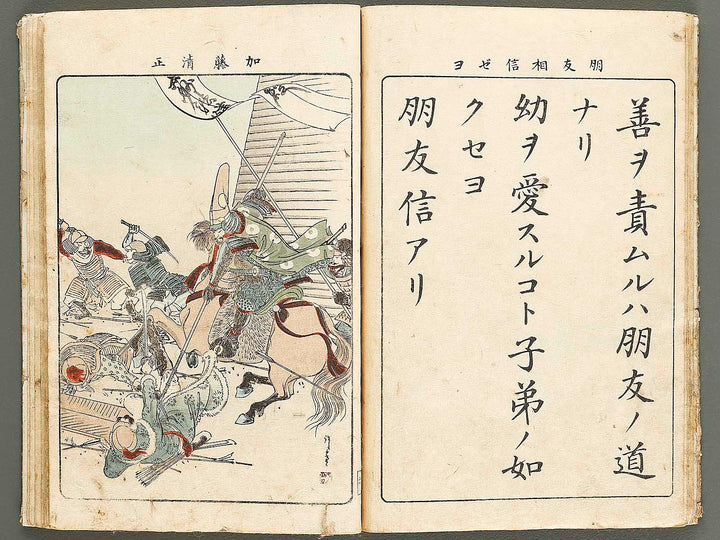 朋友相信ゼヨ
善ヲ責ムルハ朋友ノ道
ナリ
幼ヲ愛スルコト子弟ノ如
クセヨ
朋友信アリ
加藤清正